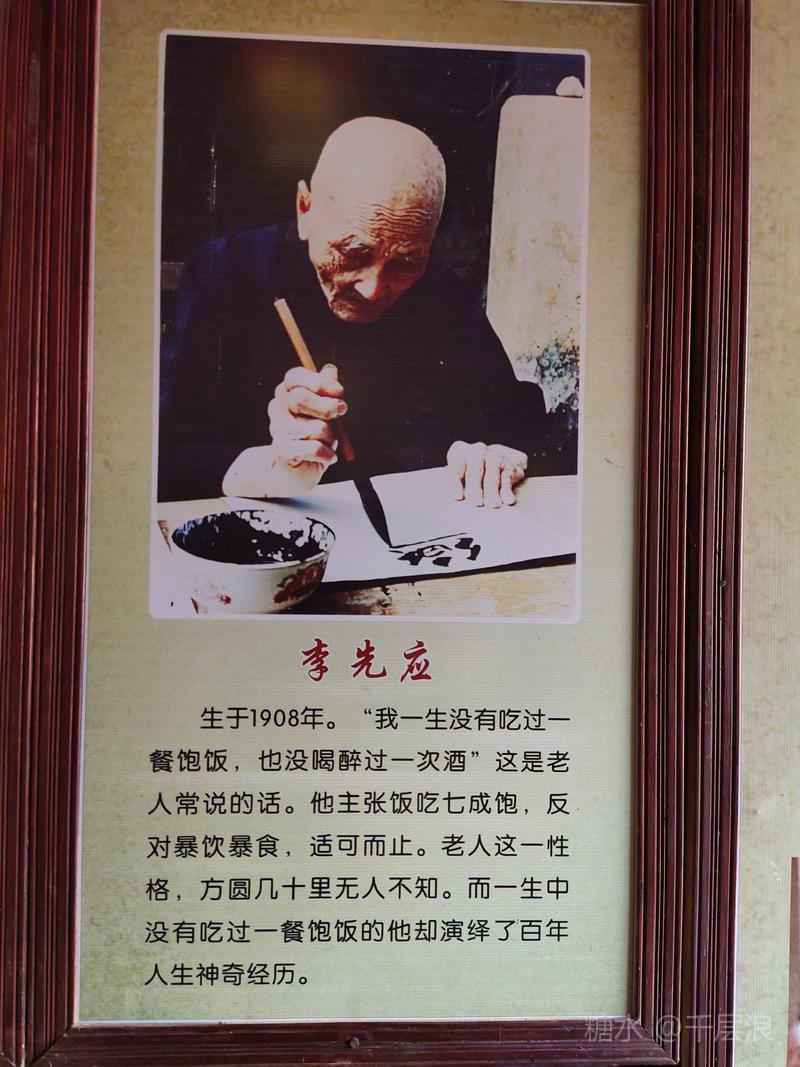 李先应
生于1908年。“我一生没有吃过一
餐饱饭，也没喝醉过一次酒”这是老
人常说的话。他主张饭吃七成饱，反
对暴饮暴食，适可而止。老人这一性
格，方圆几十里无人不知。而一生中
没有吃过一餐饱饭的他却演绎了百年
人生神奇经历。
糖水 @千层浪